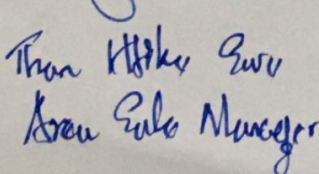 Than Htike Ewu
Area Sale Manager